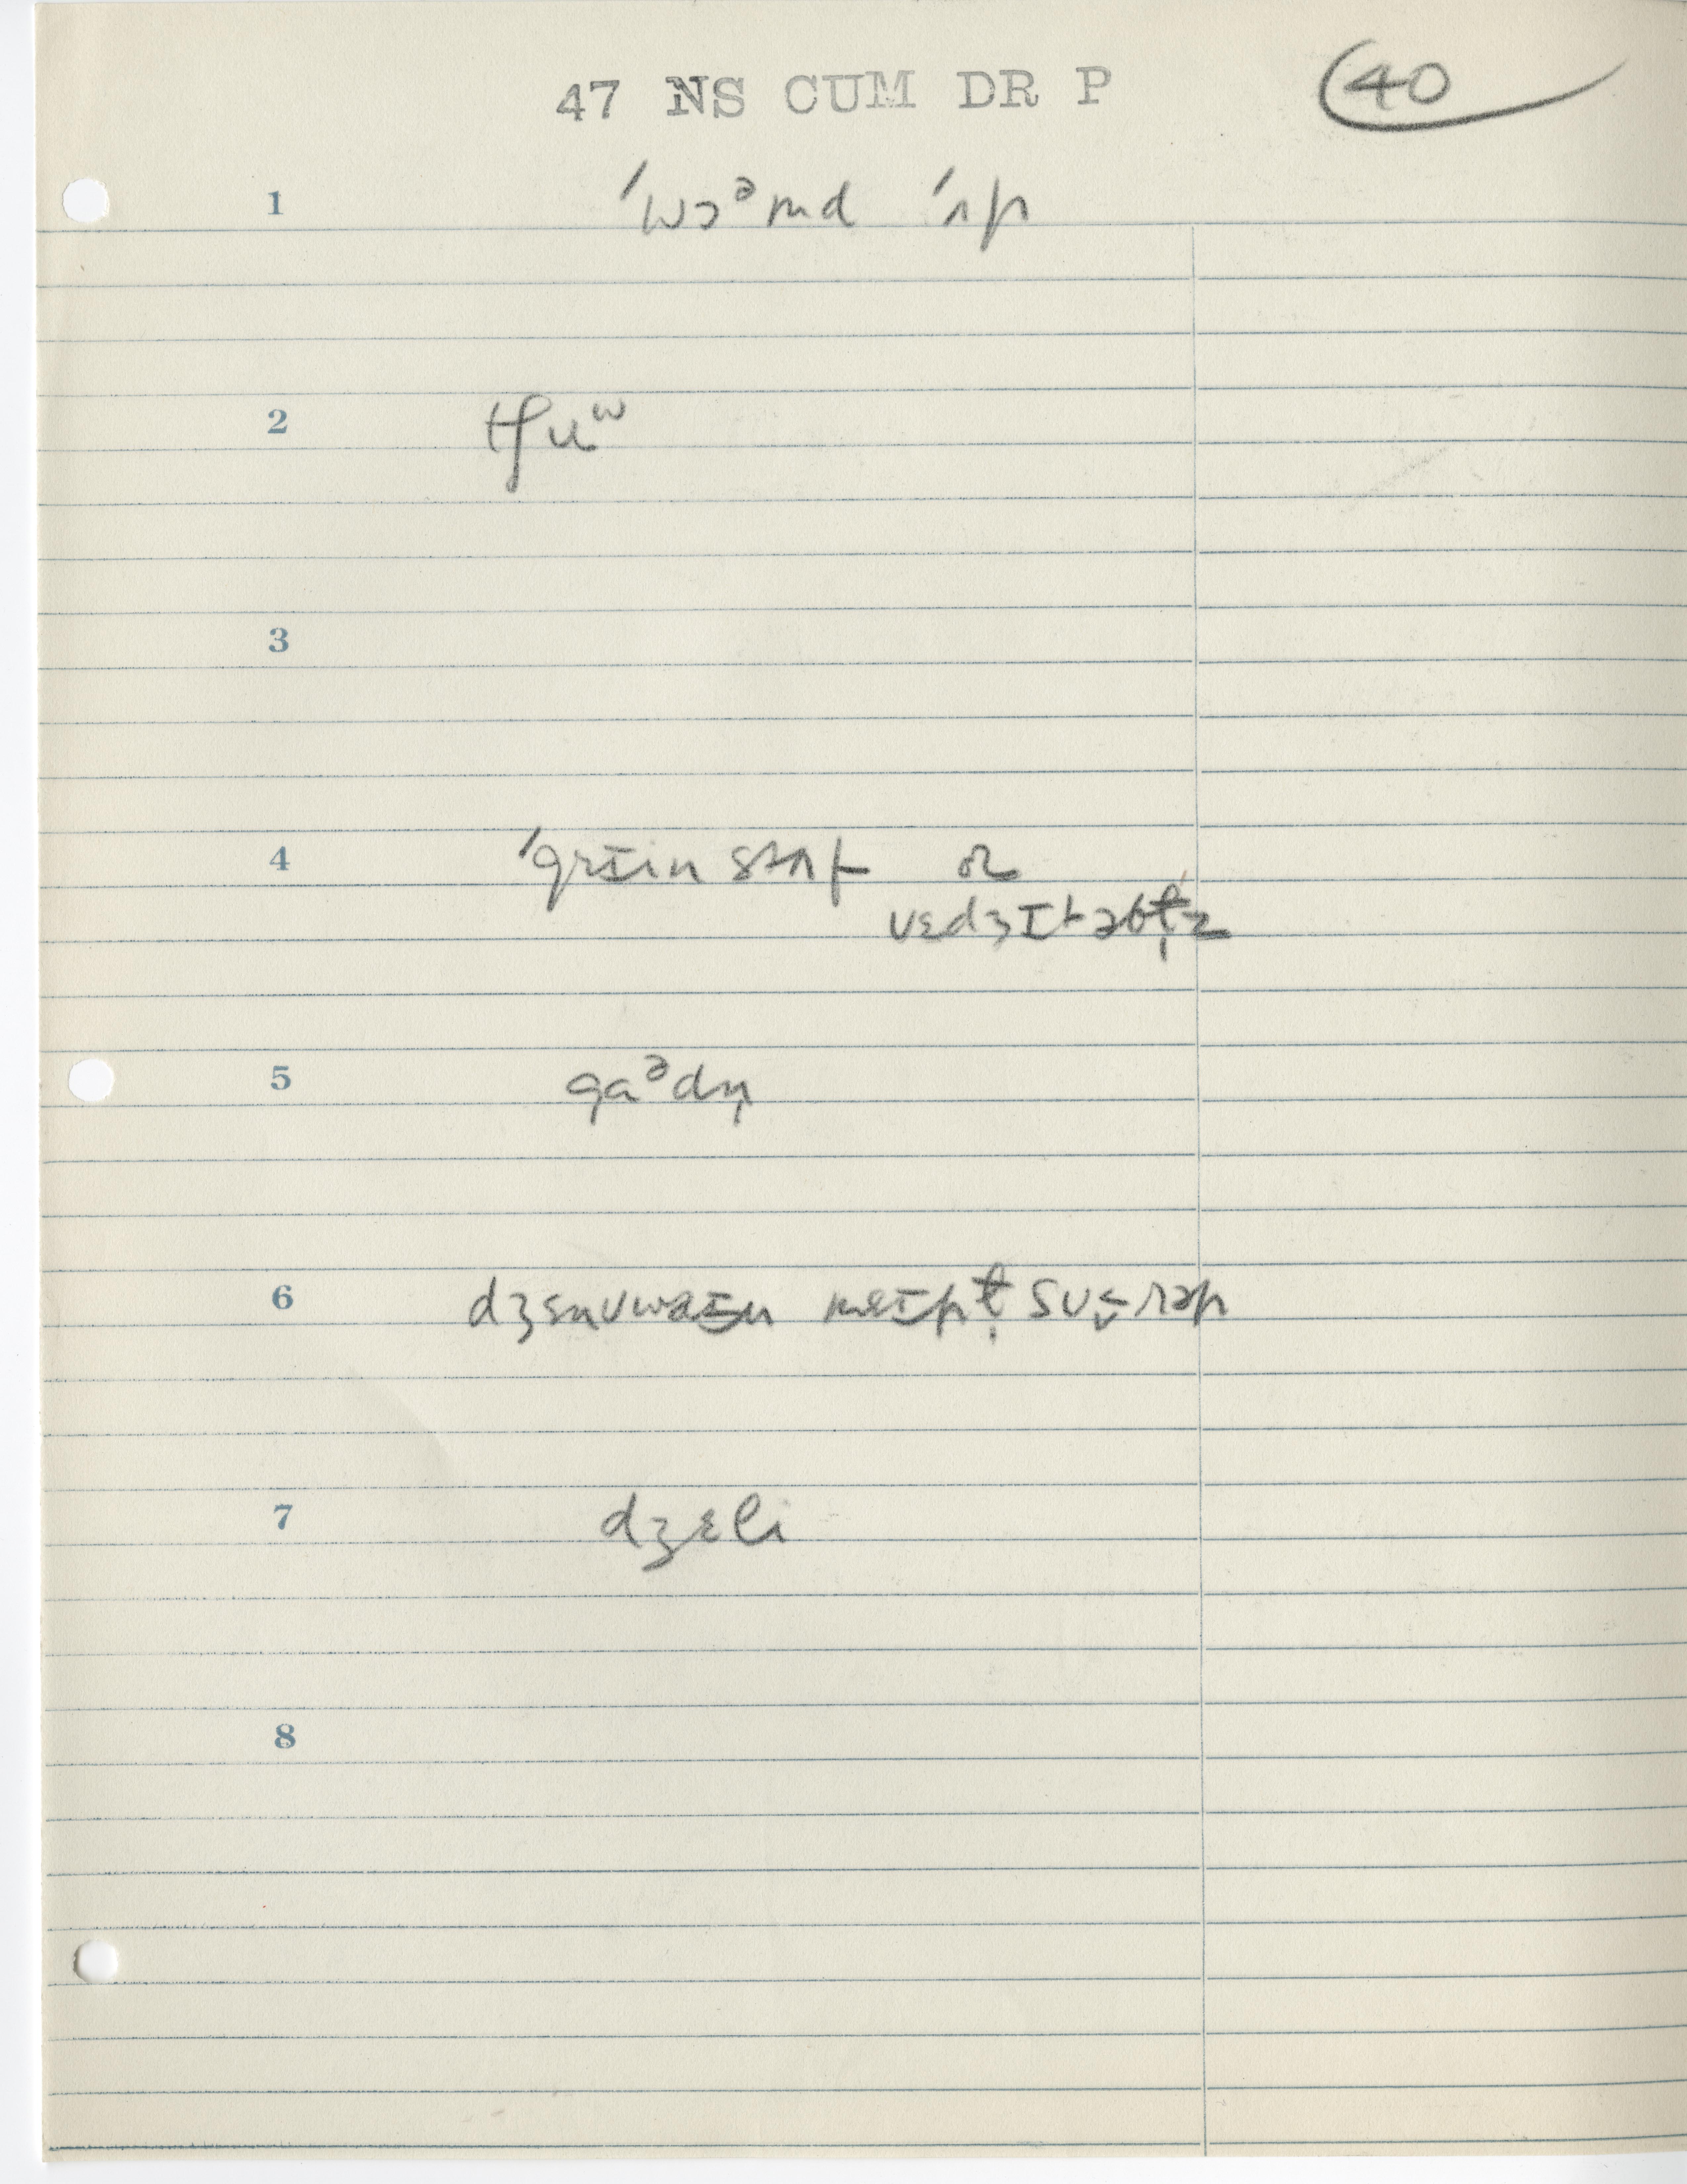 47 NS CUM DR P
40
1 ˈwɔᵊmd ˈʌp
2 tʃuʷ
3
4 ˈgrɪin stʌf or
vɛdʒɪtəbɫ̩z
5 gaᵊdn̩
6 dʒɛnuwaɪn meɪpɫ̩ sɪ̌rəp
7 dʒɛli
8